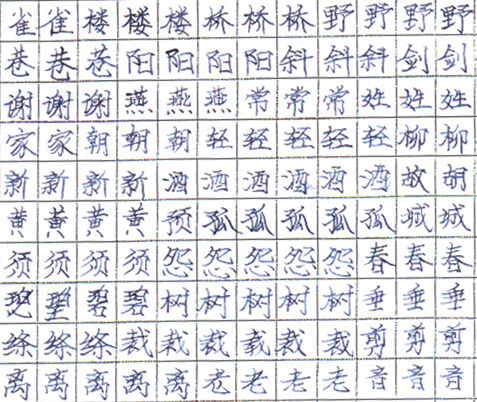 雀雀楼楼楼桥桥桥野野野野
巷巷巷阳阳阳阳斜斜斜剑剑
谢谢谢燕燕燕常常常姓姓姓
家家朝朝朝轻轻轻轻轻柳柳
新新新新酒酒酒酒酒酒故胡
黄黄黄黄预孤孤孤孤孤城城
须须须须怨怨怨怨怨春春春
碧碧树树树树树垂垂垂
绦绦绦裁裁裁裁裁裁剪剪剪
离离离离离老老老老音音音